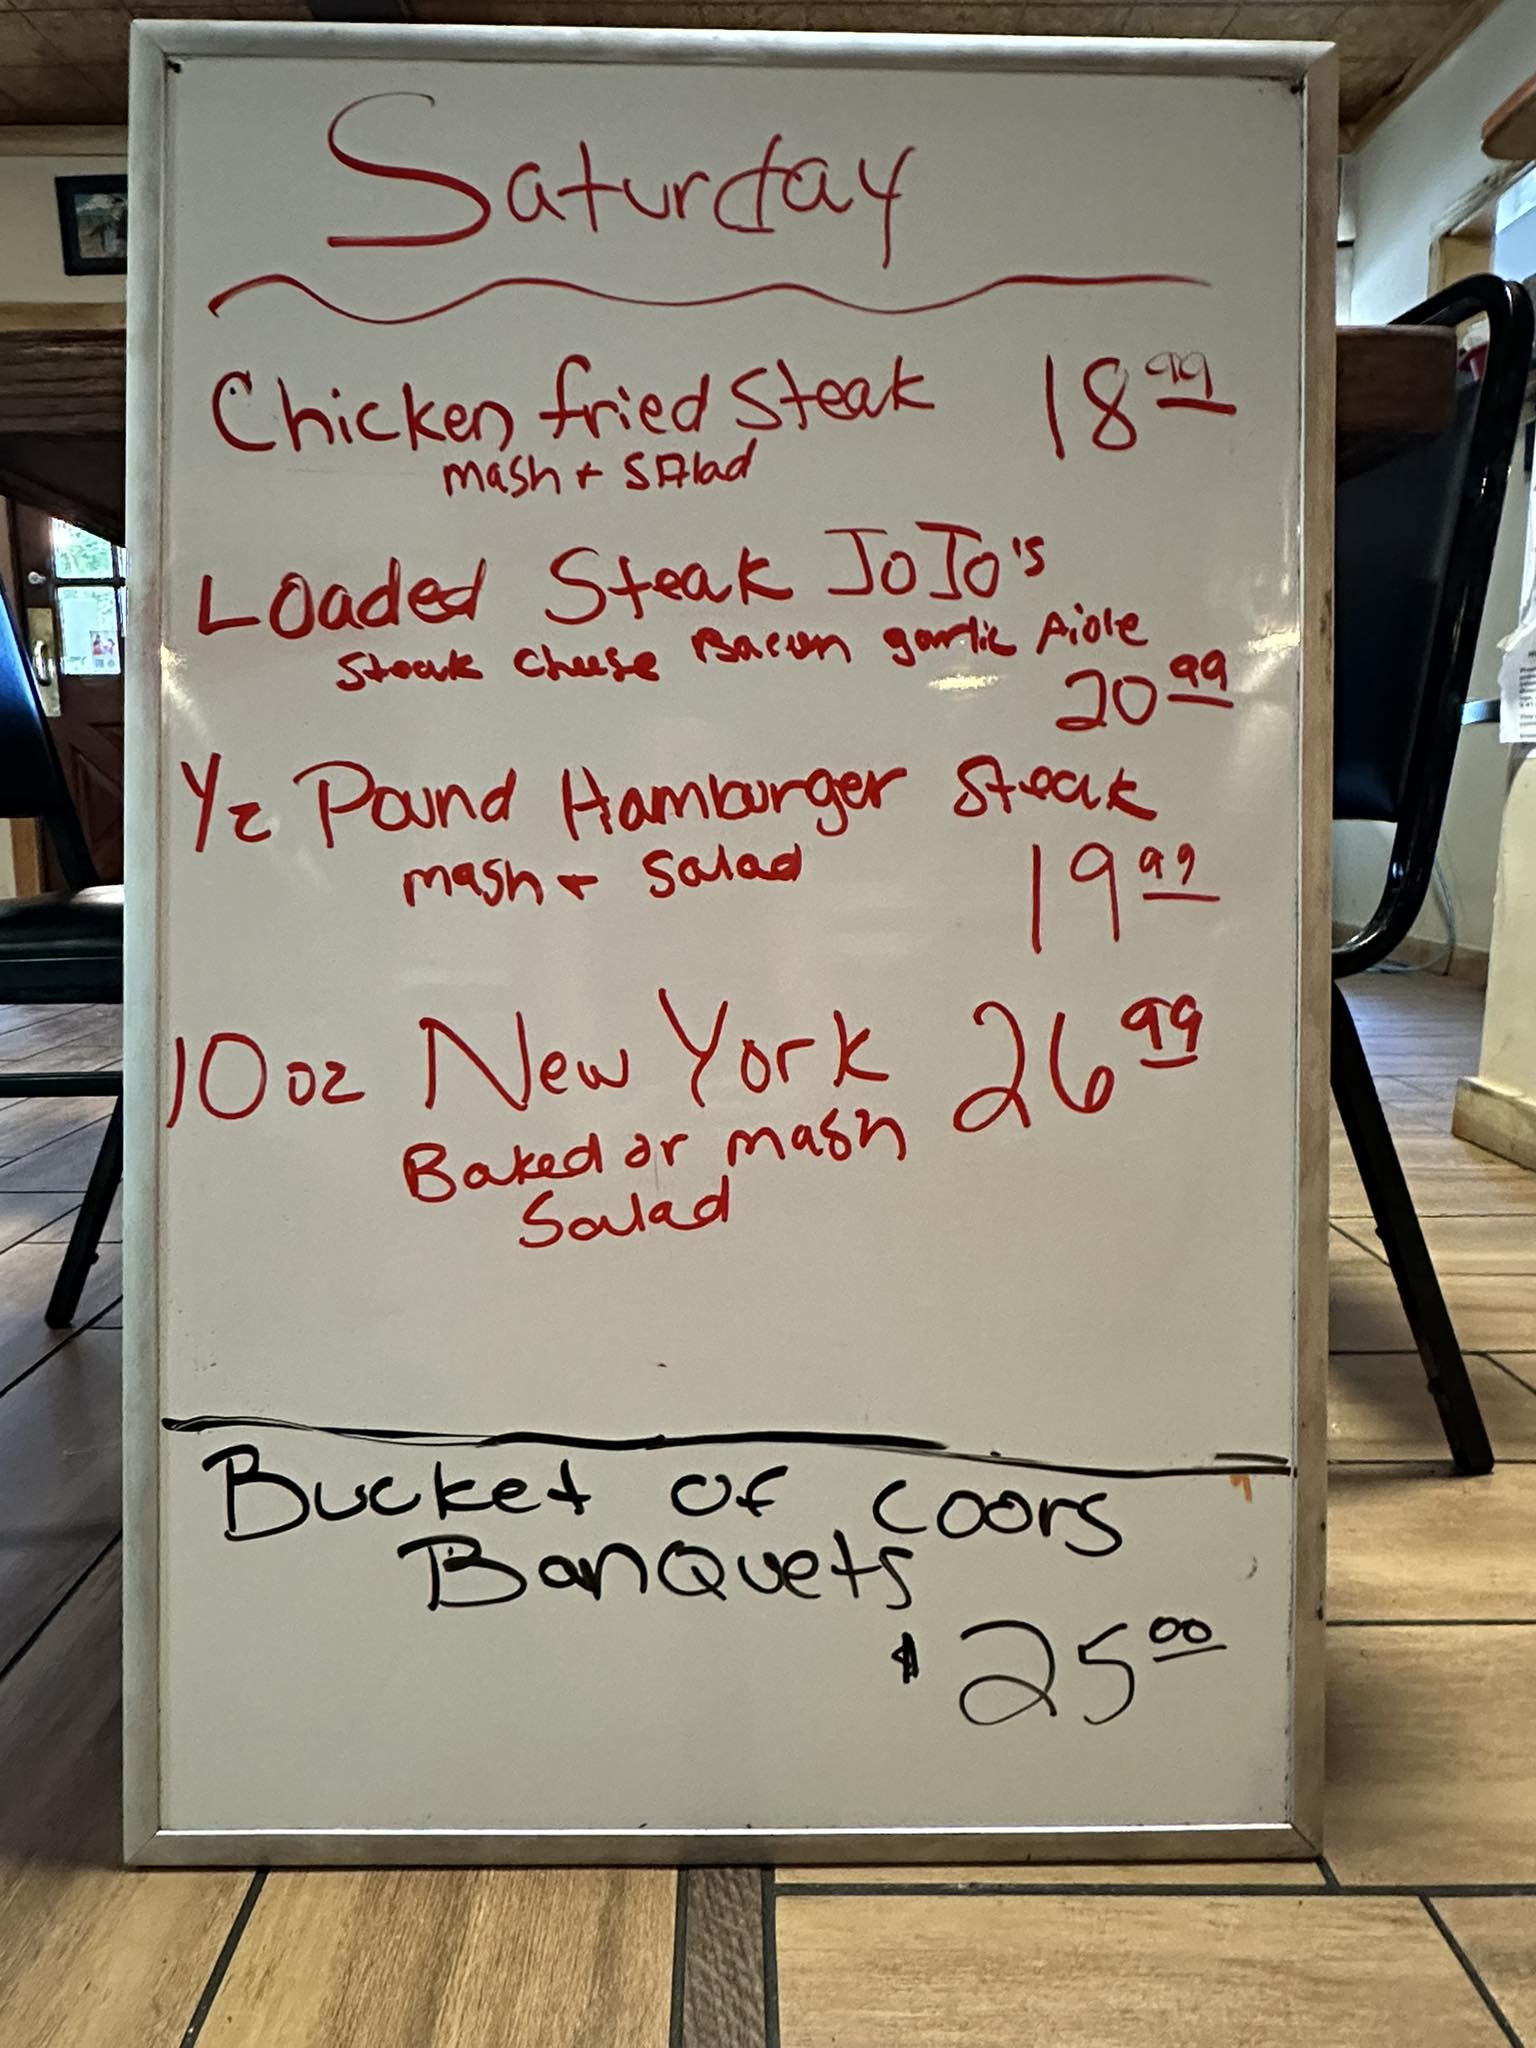 Saturday
Chicken fried Steak 18 99
mash + SAlad
Loaded Steak JoJo's
Steak cheese Bacon garlic Aiole
20 99
1/2 Pound Hamburger Steak
mash + Salad 19 99
10 oz New York 26 99
Baked or mash
Salad
Bucket of Coors
Banquets
$25 00